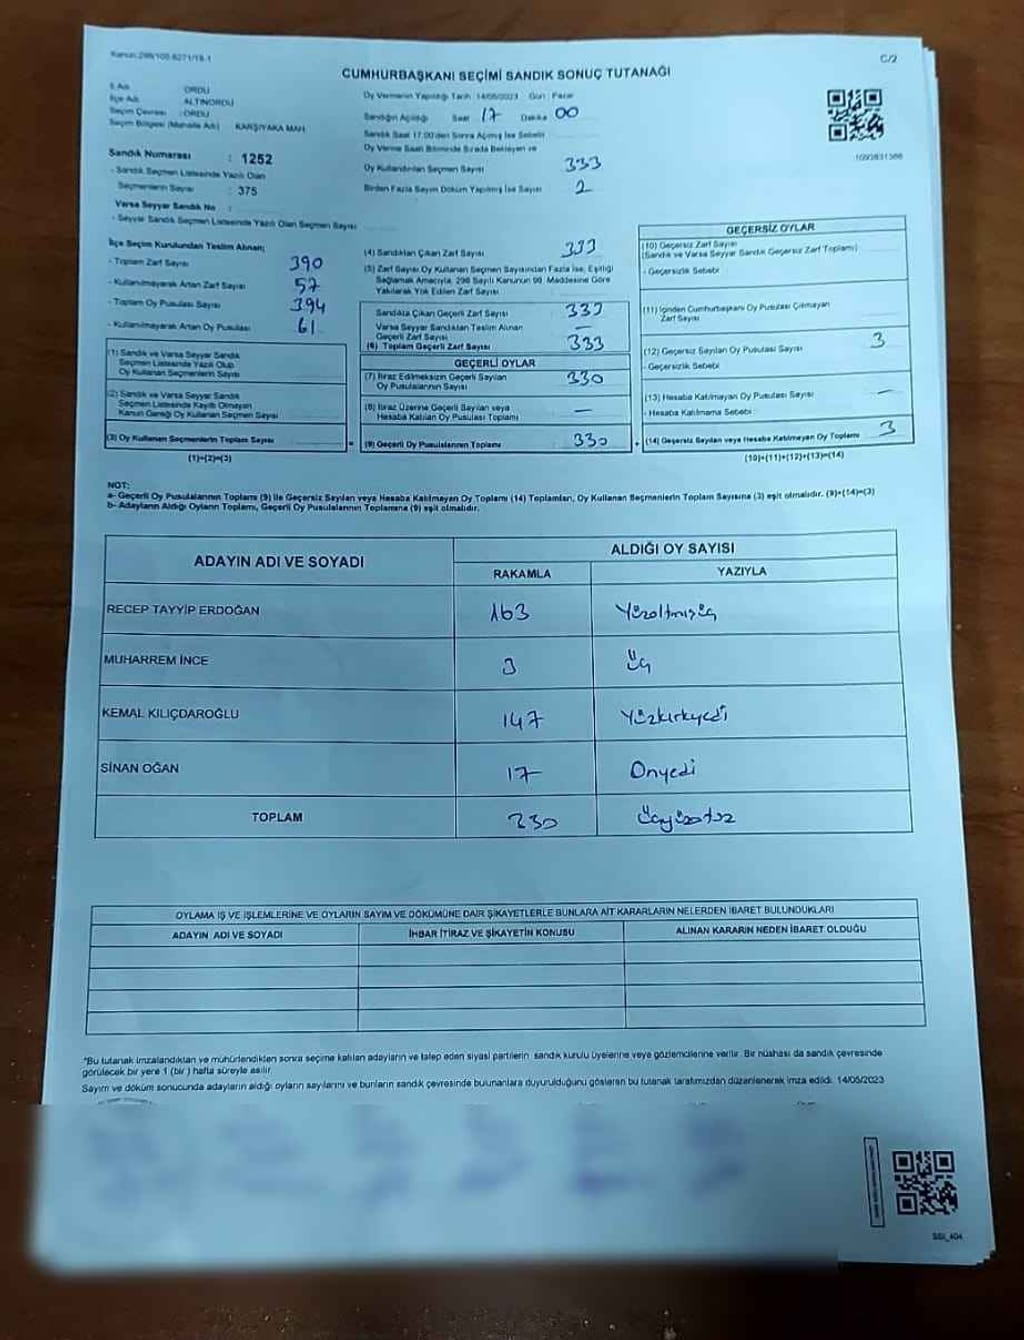 Kanun:298/105-6271/18-1
C/2
CUMHURBAŞKANI SEÇİMİ SANDIK SONUÇ TUTANAĞI
İl Adı : ORDU
İlçe Adı : ALTINORDU
Seçim Çevresi : ORDU
Seçim Bölgesi (Mahalle Adı) : KARŞIYAKA MAH.
Sandık Numarası : 1252
- Sandık Seçmen Listesinde Yazılı Olan
Seçmenlerin Sayısı : 375
Varsa Seyyar Sandık No :
- Seyyar Sandık Seçmen Listesinde Yazılı Olan Seçmen Sayısı
Oy Vermenin Yapıldığı Tarih :14/05/2023 Gün : Pazar
Sandığın Açıldığı Saat 17 Dakika 00
Sandık Saat 17:00'den Sonra Açılmış İse Sebebi
Oy Verme Saati Bitiminde Sırada Bekleyen ve
Oy Kullandırılan Seçmen Sayısı 333
Birden Fazla Sayım Döküm Yapılmış İse Sayısı 2
1093831386
İlçe Seçim Kurulundan Teslim Alınan;
- Toplam Zarf Sayısı 390
- Kullanılmayarak Artan Zarf Sayısı 57
- Toplam Oy Pusulası Sayısı 394
- Kullanılmayarak Artan Oy Pusulası 61
(1) Sandık ve Varsa Seyyar Sandık
Seçmen Listesinde Yazılı Olup
Oy Kullanan Seçmenlerin Sayısı
(2) Sandık ve Varsa Seyyar Sandık
Seçmen Listesinde Kayıtlı Olmayan
Kanun Gereği Oy Kullanan Seçmen Sayısı
(3) Oy Kullanan Seçmenlerin Toplam Sayısı =
(1)+(2)=(3)
(4) Sandıktan Çıkan Zarf Sayısı 333
(5) Zarf Sayısı Oy Kullanan Seçmen Sayısından Fazla İse, Eşitliği
Sağlamak Amacıyla, 298 Sayılı Kanunun 98. Maddesine Göre
Yakılarak Yok Edilen Zarf Sayısı
Sandıkta Çıkan Geçerli Zarf Sayısı 333
Varsa Seyyar Sandıktan Teslim Alınan
Geçerli Zarf Sayısı —
(6) Toplam Geçerli Zarf Sayısı 333
GEÇERLİ OYLAR
(7) İtiraz Edilmeksizin Geçerli Sayılan
Oy Pusulalarının Sayısı 330
(8) İtiraz Üzerine Geçerli Sayılan veya
Hesaba Katılan Oy Pusulası Toplamı —
(9) Geçerli Oy Pusulalarının Toplamı 330 +
GEÇERSİZ OYLAR
(10) Geçersiz Zarf Sayısı
(Sandık ve Varsa Seyyar Sandık Geçersiz Zarf Toplamı)
- Geçersizlik Sebebi
(11) İçinden Cumhurbaşkanı Oy Pusulası Çıkmayan
Zarf Sayısı
(12) Geçersiz Sayılan Oy Pusulası Sayısı 3
- Geçersizlik Sebebi
(13) Hesaba Katılmayan Oy Pusulası Sayısı —
- Hesaba Katılmama Sebebi
(14) Geçersiz Sayılan veya Hesaba Katılmayan Oy Toplamı 3
(10)+(11)+(12)+(13)=(14)
NOT:
a- Geçerli Oy Pusulalarının Toplamı (9) ile Geçersiz Sayılan veya Hesaba Katılmayan Oy Toplamı (14) Toplamları, Oy Kullanan Seçmenlerin Toplam Sayısına (3) eşit olmalıdır. (9)+(14)=(3)
b- Adayların Aldığı Oyların Toplamı, Geçerli Oy Pusulalarının Toplamına (9) eşit olmalıdır.
ADAYIN ADI VE SOYADI
ALDIĞI OY SAYISI
RAKAMLA YAZIYLA
RECEP TAYYİP ERDOĞAN 163 Yüzaltmışüç
MUHARREM İNCE 3 Üç
KEMAL KILIÇDAROĞLU 147 Yüzkırkyedi
SİNAN OĞAN 17 Onyedi
TOPLAM 330 Üçyüzotuz
OYLAMA İŞ VE İŞLEMLERİNE VE OYLARIN SAYIM VE DÖKÜMÜNE DAİR ŞİKAYETLERLE BUNLARA AİT KARARLARIN NELERDEN İBARET BULUNDUKLARI
ADAYIN ADI VE SOYADI İHBAR İTİRAZ VE ŞİKAYETİN KONUSU ALINAN KARARIN NEDEN İBARET OLDUĞU
*Bu tutanak imzalandıktan ve mühürlendikten sonra seçime katılan adayların ve talep eden siyasi partilerin sandık kurulu üyelerine veya gözlemcilerine verilir. Bir nüshası da sandık çevresinde
görülecek bir yere 1 (bir) hafta süreyle asılır.
Sayım ve döküm sonucunda adayların aldığı oyların sayılarını ve bunların sandık çevresinde bulunanlara duyurulduğunu gösteren bu tutanak tarafımızdan düzenlenerek imza edildi. 14/05/2023